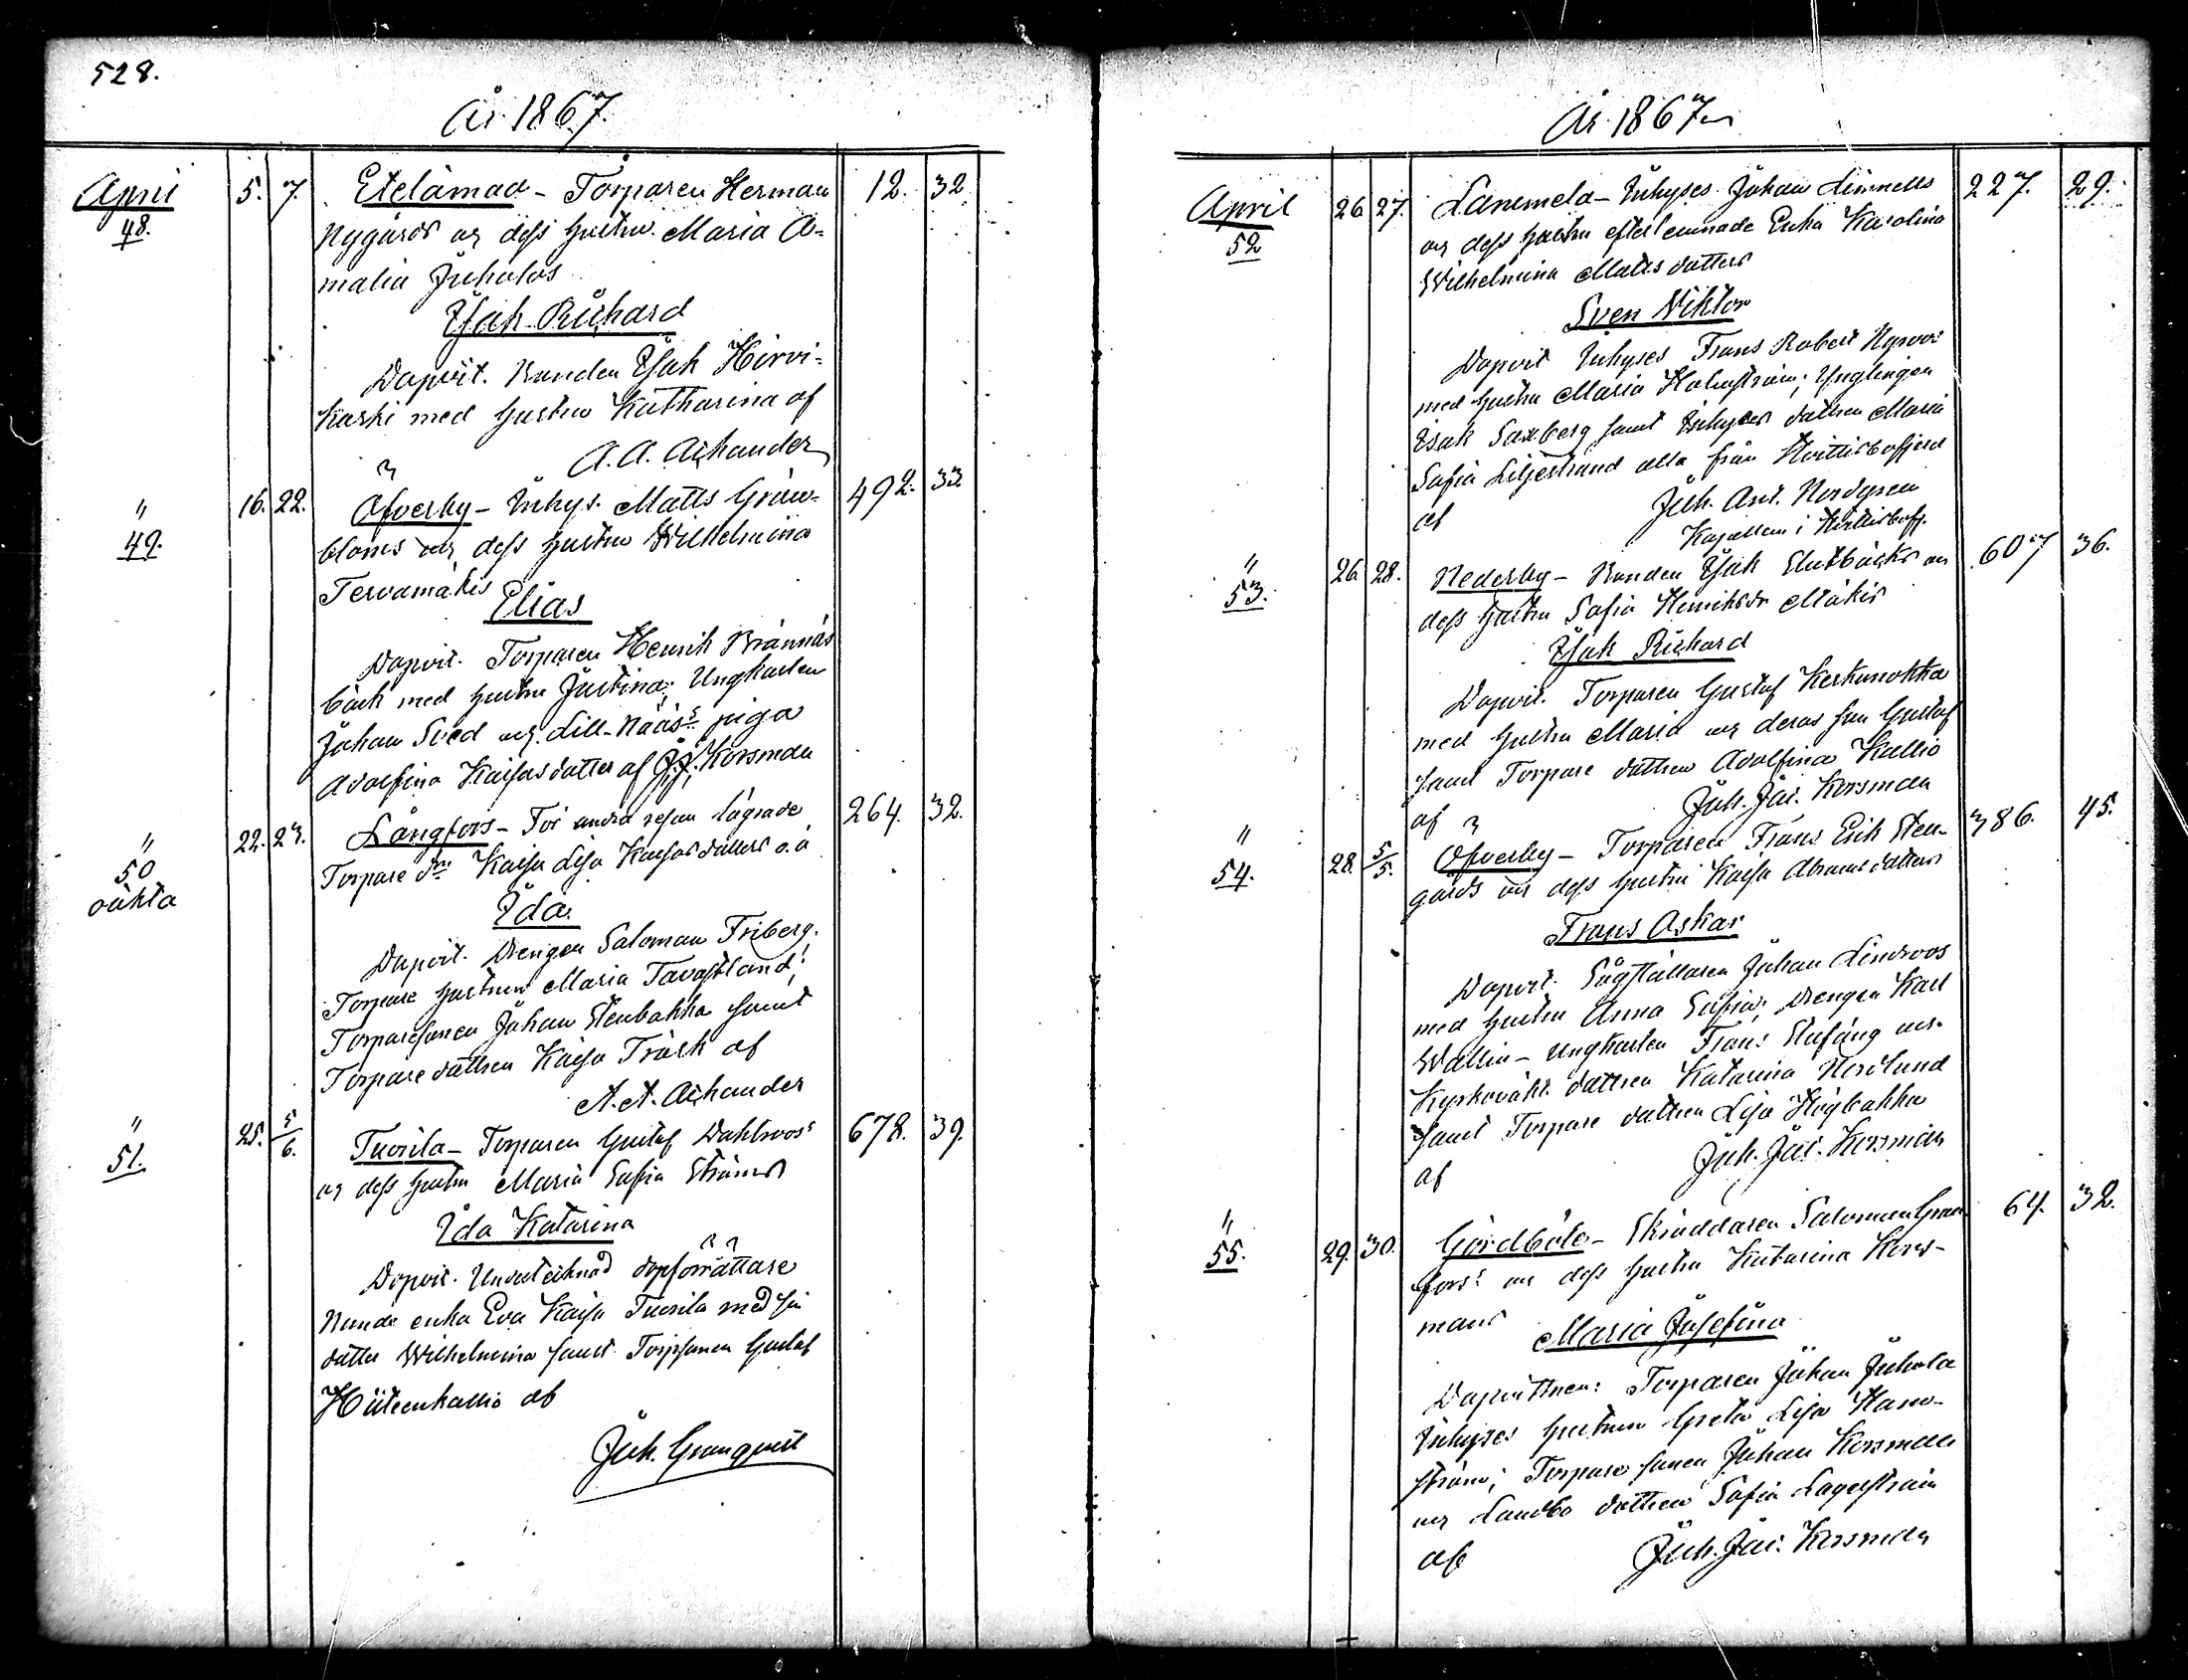 528.
År 1867.
April 5. 7. Etelämaa - Torparen Herman 12. 32
48. Nygårds och dess hustru Maria A=
malia Juholas
Isak Richard
Dopvit. Bonden Isak Hirvi=
karki med hustru Katharina af
A. A. Achander
" 16. 22. Öfverby - Inhys. Matts Grön= 492. 33
49. bloms och dess hustru Wilhelmina
Tervamäkis
Elias
Dopvit. Torparen Henrik Brännäs
back med hustru Justina; Ungkarlen
Johan Sved och Lill-Nääs piga
Adolfina Kaisasdotter af J. J. Korsman
" 22. 23. Långfors - För andra resan lägrade 264. 32.
50 Torpare d:n Kaisa Lisa Kaisasdotters o. ä
oäkta
Ida.
Dopvit. Drengen Saloman Friberg.
Torpare hustrun Maria Tavastland;
Torparesonen Johan Stenbakka samt
Torpare dottren Kaisa Träsk af
A. A. Achander
" 25. 5/6. Tuorila - Torparen Gustaf Dahlroos 678. 39.
51. och dess hustru Maria Sofia Ströms
Ida Katarina
Dopvit. Undertecknad dopförrättare
Bonde enka Eva Kaisa Tuorila med sin
dotter Wilhelmina samt Torpsonen Gustaf
Hiiteenkallio af
Joh. Granqvist
År 1867
April 26 27. Lammela - Inhyses Johan Linnells 227. 29.
52 och dess hustru efterlemnade Enka Karolina
Wilhelmina Mattsdotters
Sven Viktor
Dopvit Inhyses Frans Robert Nyroos
med hustru Maria Holmström; Ynglingen
Isak Saxberg samt Inhyses dottren Maria
Sofia Liljestrand alla från Hvittisbofjerd
af Joh. Ant. Nordgren
Kapellan i Hvittisbofj.
" 26. 28. Nederby - Bonden Isak Slutbäcks och 607 36.
53. dess hustru Sofia Henriksdr Mäkis
Isak Richard
Dopvit. Torparen Gustaf Keskunokka
med hustru Maria och deras son Gustaf
samt Torpare dottren Adolfina Kallio
af Joh. Jac. Korsman
" 28. 5/5. Öfverby - Torparen Frans Erik Sten- 386. 45.
54. gårds och dess hustru Kaisa Abramsdotters
Frans Oskar
Dopvit. Sågställaren Johan Lindroos
med hustru Anna Sofia; Drengen Karl
Wallin - Ungkarlen Frans Nufäng och
Kyrkovakt. dottren Katarina Nordlund
samt Torpare dottren Lisa Högbakka
af Joh. Jac. Korsman
" 29. 30. Gårdböle - Skräddaren Saloman Gran 64. 32.
55. fors och dess hustru Katarina Kors-
mans
Maria Josefina
Dopvittnen: Torparen Johan Juhola
Inhyses hustrun Greta Lisa Hamn-
ström; Torpare sonen Johan Korsman
och Landbo dottren Sofia Lagerström
af Joh. Jac. Korsman